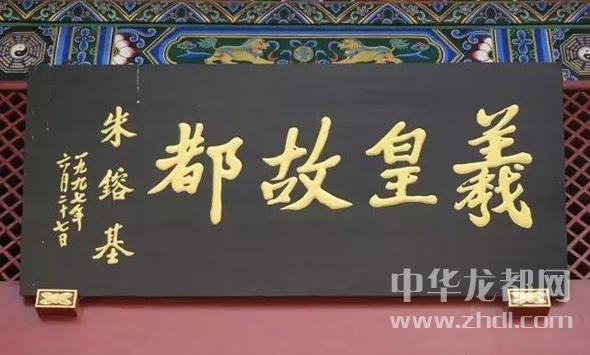 羲皇故都
朱鎔基
一九九七年
六月二十七日
中华龙都网
www.zhdl.com